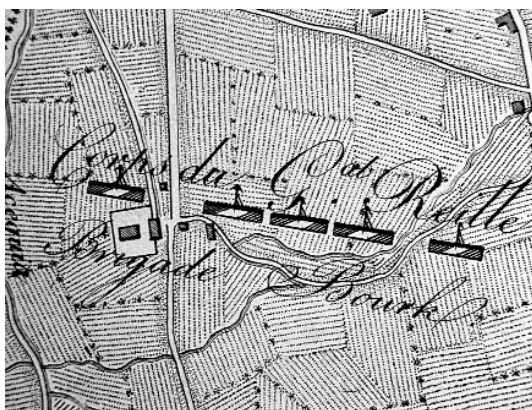 Corps du G.al Reille
Brigade Bourk